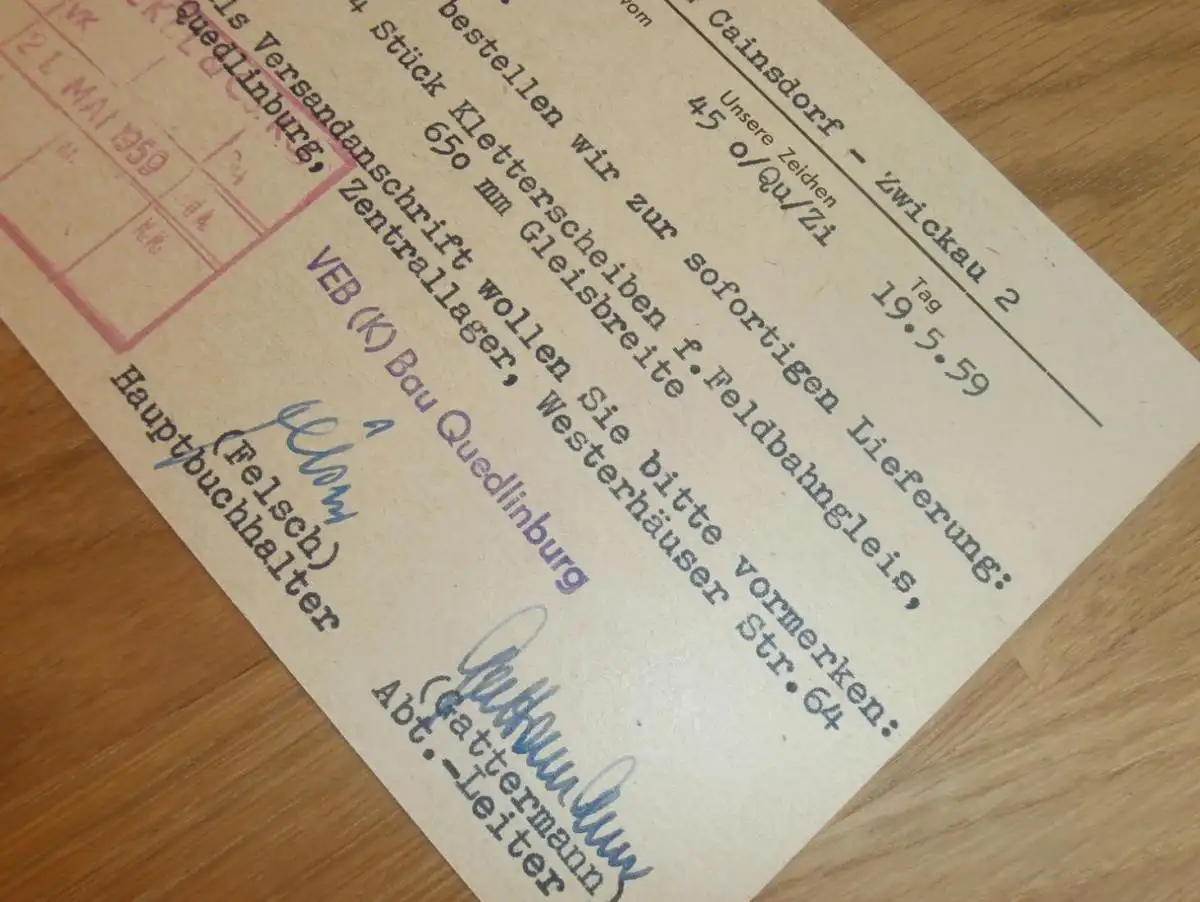 Cainsdorf - Zwickau 2
vom
Unsere Zeichen
Tag
45 o/Qu/Zi
19.5.59
bestellen wir zur sofortigen Lieferung:
4 Stück Kletterscheiben f.Feldbahngleis,
650 mm Gleisbreite
ls Versandanschrift wollen Sie bitte vormerken:
Quedlinburg, Zentrallager, Westerhäuser Str.64
VK
21. MAI 1959
VEB (K) Bau Quedlinburg
(Felsch)
Hauptbuchhalter
(Gattermann)
Abt.-Leiter